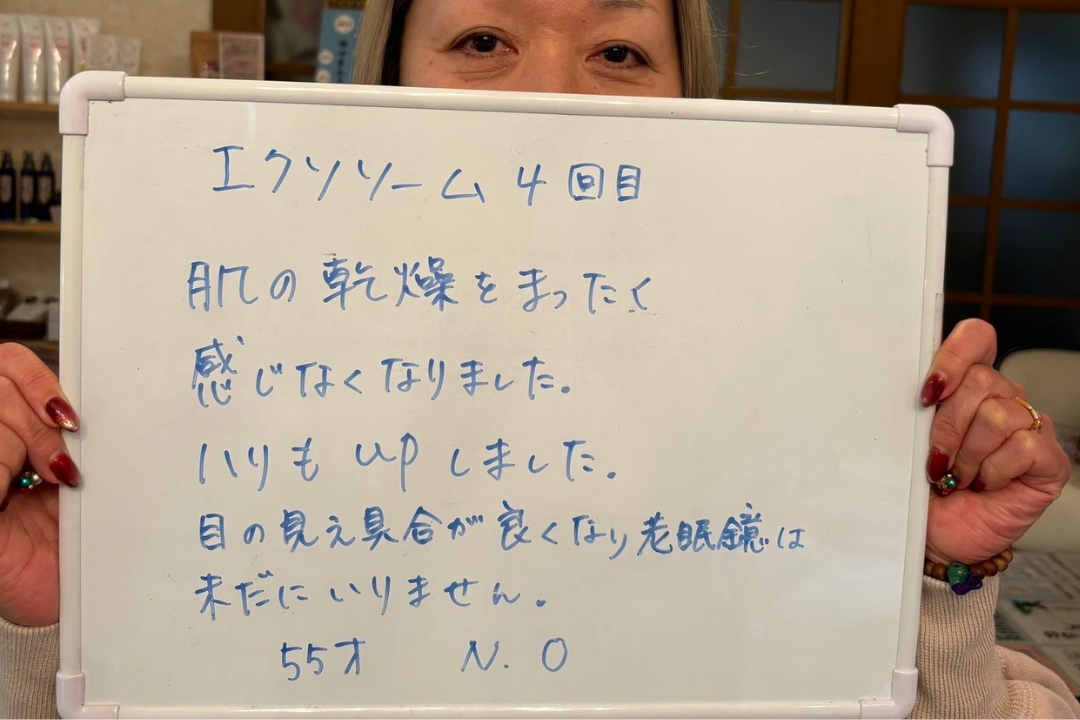 エクソソーム 4回目
肌の乾燥をまったく
感じなくなりました。
ハリも up しました。
目の見え具合が良くなり老眼鏡は
未だにいりません。
55才 N. O